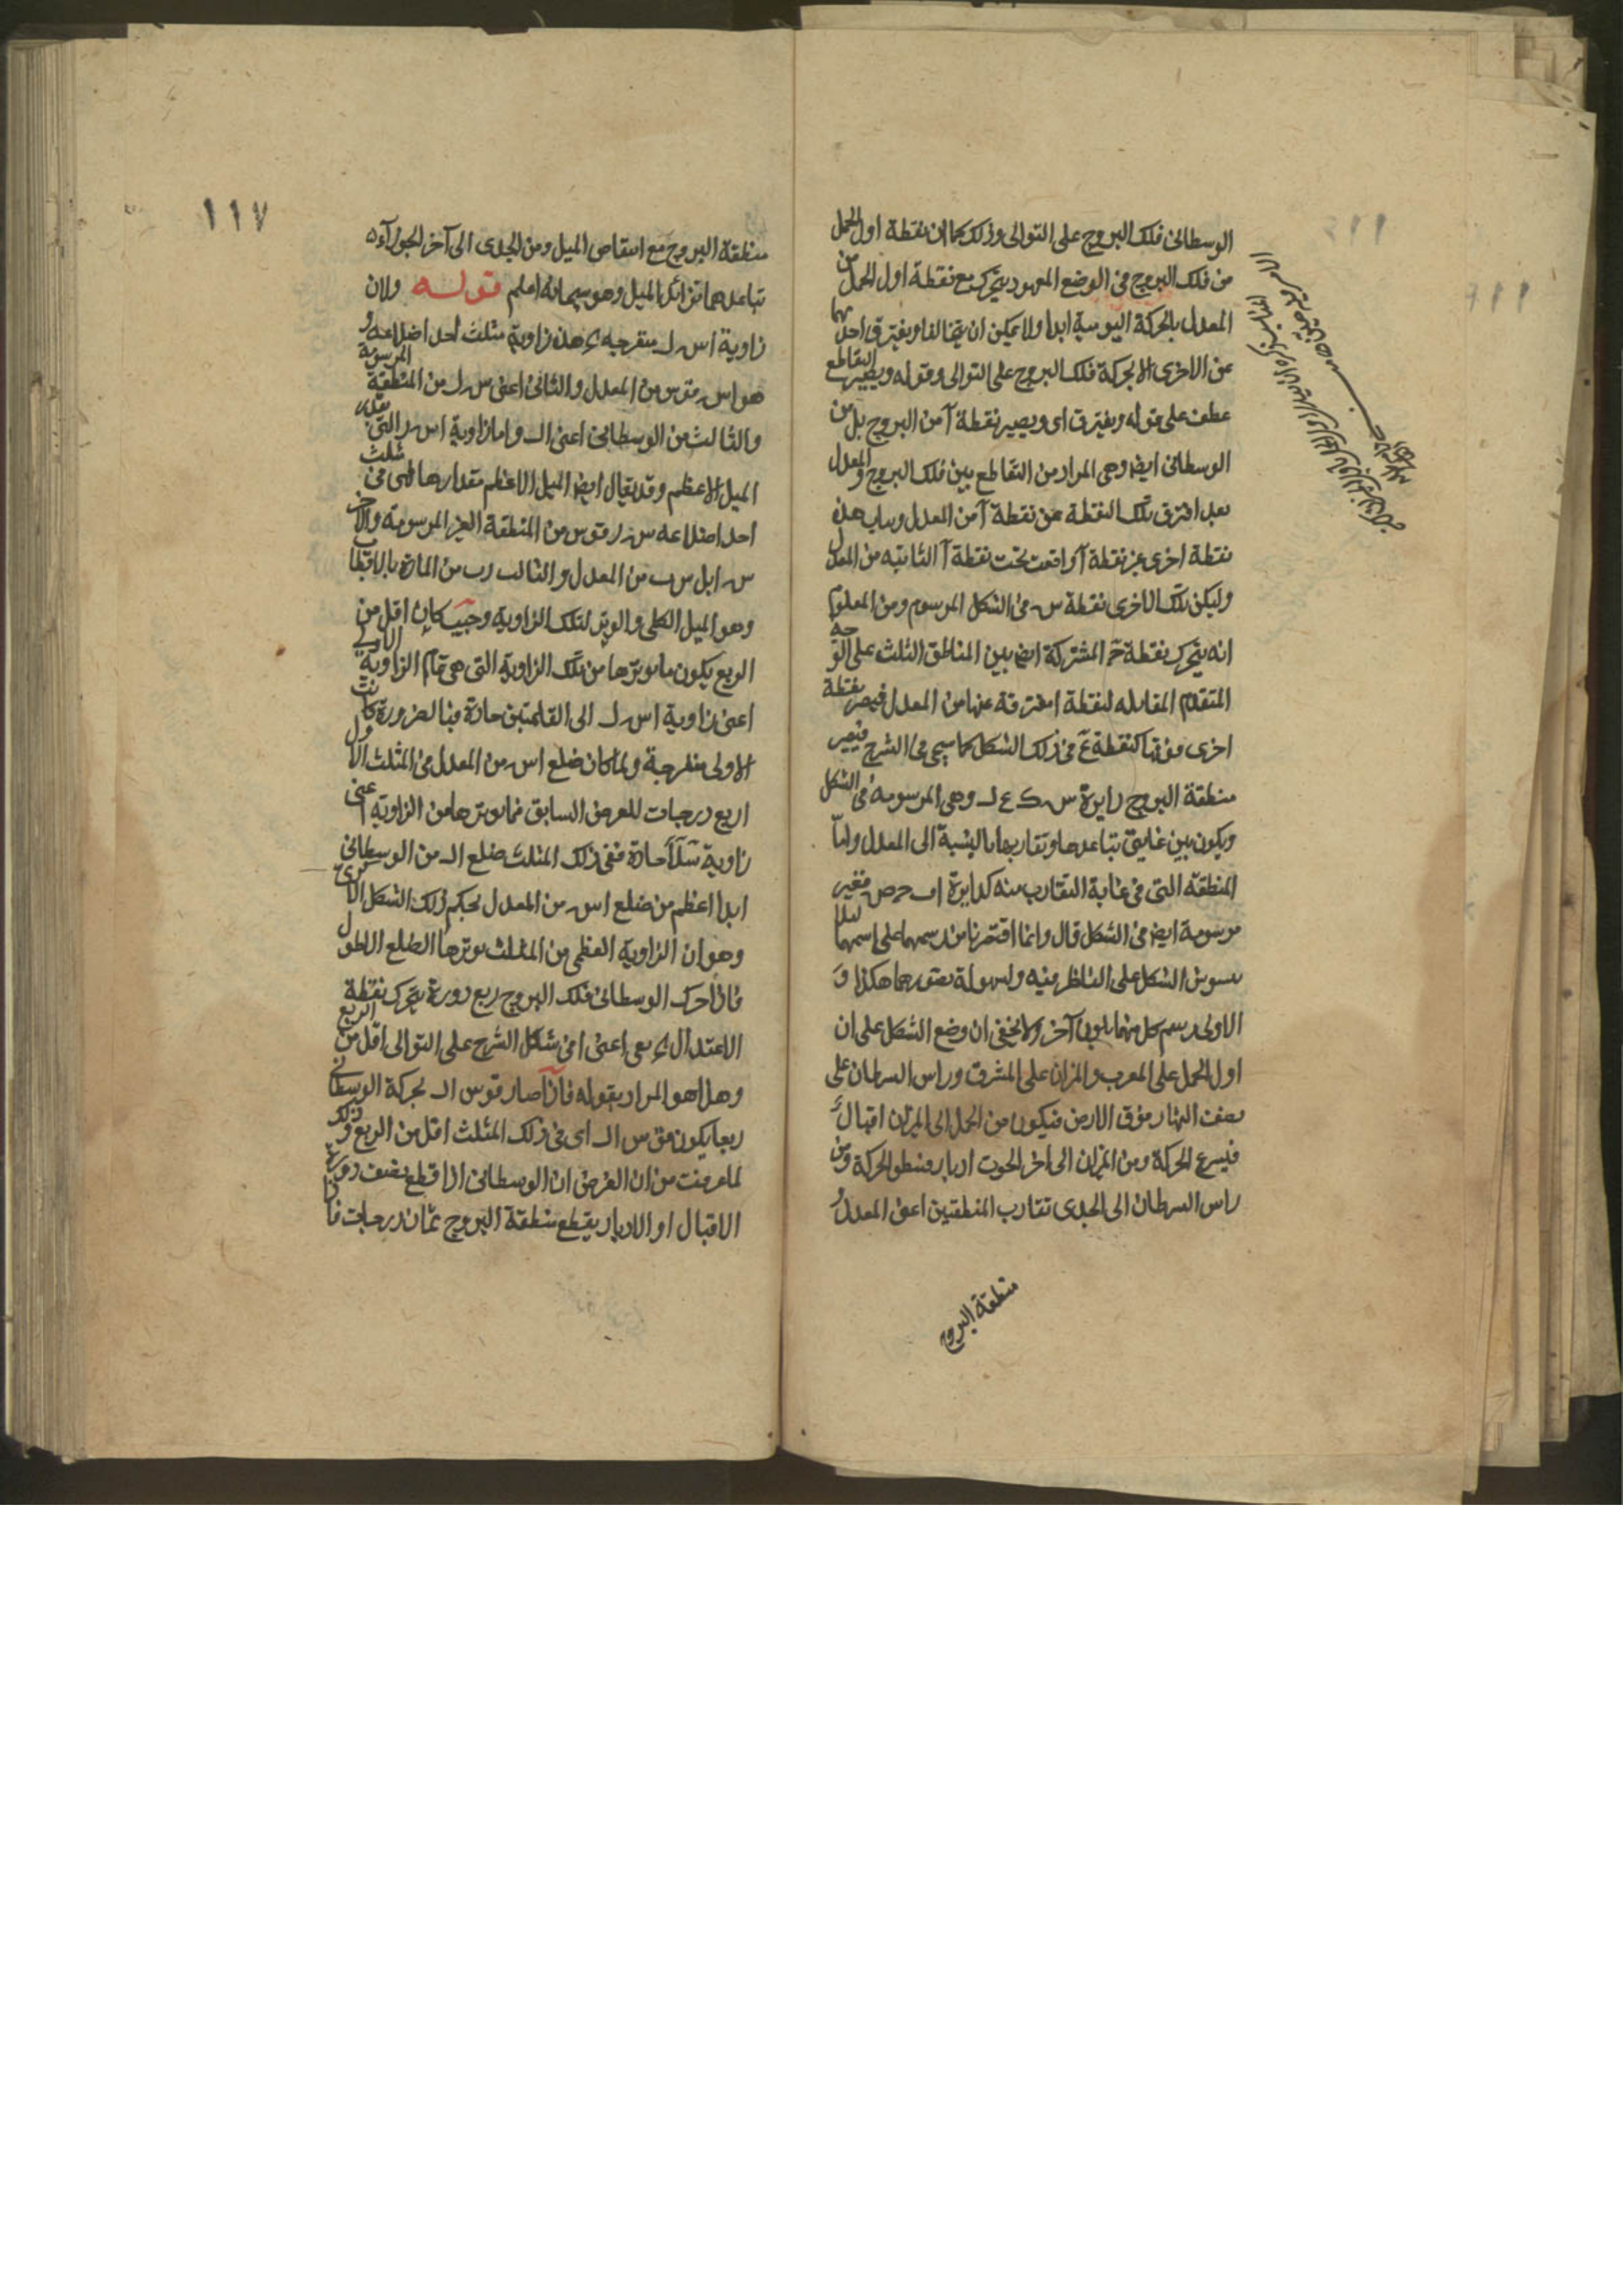 الوسطانى فلك البروج على التوالى وذلك كما ان نقطة اول الحمل
من فلك البروج فى الوضع المعهود يتحرك مع نقطة اول الحمل من
المعدل بالحركة اليومية ابدا ولا يمكن ان يتخالفا ويفترق احدهما
عن الاخرى الا بحركة فلك البروج على التوالى وقوله ويصير التقاطع
عطف على قوله ويفترق اى ويصير نقطة آ من البروج بل من
الوسطانى ايض وهى المراد من التقاطع بين فلك البروج والمعدل
بعد افترق تلك النقطة عن نقطة آ من المعدل هذه
نقطة اخرى غير نقطة آ واقعت تحت نقطة آ الثانيه من المعدل
وليكن تلك الاخرى نقطة س فى الشكل المرسوم ومن المعلوم
انه يتحرك نقطة حَ المشتركة ايض بين المناطق الثلث على الوجه
المتقدم المقابله لنقطة ا مفترقة عنها من المعدل فيصير نقطة
اخرى فوقها كنقطة عَ فى ذلك الشكل كما سيجى فى الشرح فيصير
منطقة البروج دايرة س ك ع ل وهى المرسومة فى الشكل
ويكون بين غايتى تباعدها وتقاربها بالنسبة الى المعدل واما
المنطقه التى فى غاية التقارب منه كدايرة ا ف ح ص فغير
مرسومة ايض فى الشكل قال وانما اقتصرنا من رسمهما على اسمهما لئلا
يتشوش الشكل على الناظر فيه ولسهولة تصورهما هكذا و
الاولى رسم كل منهما بلون آخر ولا يخفى ان وضع الشكل على ان
اول الحمل على المغرب والمزان على المشرق وراس السرطان على
نصف النهار فوق الارض فيكون من الحمل الى الميزان اقبال
فيسرع الحركة ومن الميزان الى اخر الحوت ادبار فيبطو الحركة ومن
راس السرطان الى الجدى تقارب المنطقتين اعنى المعدل و
منطقة البروج
١١٧
منطقة البروج مع انتقاص الميل ومن الجدى الى آخر الجوزآء
تباعدهما تزائد الميل وهو سبحانه اعلم قوله ولان
زاوية ا س ل منفرجه هذه زاوية مثلث احد اضلاعه و
هو ا س قوس من المعدل والثانى اعنى س ل من المنطقة المرسومة
والثالث من الوسطانى اعنى ا ل واما زاوية ا س ر التى بقدر
الميل الاعظم وقد يقال ايض الميل الاعظم مقدارها فهى فى مثلث
احد اضلاعه س ر قوس من المنطقة الغير المرسومة والاخر
س ا بل س ب من المعدل والثالث ر ب من المارة بالاقطاب
وهو الميل الكلى والوتر لتلك الزاوية وحيث كان اقل من
الربع يكون ما يوترها من تلك الزاوية التى هى تمام الزاوية الاولى
اعنى زاوية ا س ل الى القائمتين حادة فبالضرورة كانت
الاولى منفرجة ولما كان ضلع ا س من المعدل فى المثلث الاول
اربع درجات للعرض السابق فما يوترها من الزاوية اعنى
زاوية سَلَاَ حادة ففى ذلك المثلث ضلع ا ل من الوسطانى
ابدا اعظم من ضلع ا س من المعدل بحكم ذلك الشكل
وهو ان الزاوية العظمى من المثلث يوترها الضلع الاطول
فاذا حرك الوسطانى فلك البروج ربع دورة يتحرك نقطة
الاعتدال الربيعى اعنى ا فى شكل الشرح على التوالى اقل من الربع
وهذا هو المراد بقوله فاذا صار قوس ا ل بحركة الوسطانى
ربعا يكون قوس ا س اى فى ذلك المثلث اقل من الربع وذلك
لما عرفت من ان الفرض ان الوسطانى اذا قطع نصف دورة
الاقبال او الادبار يقطع منطقة البروج ثمان درجات فاذا